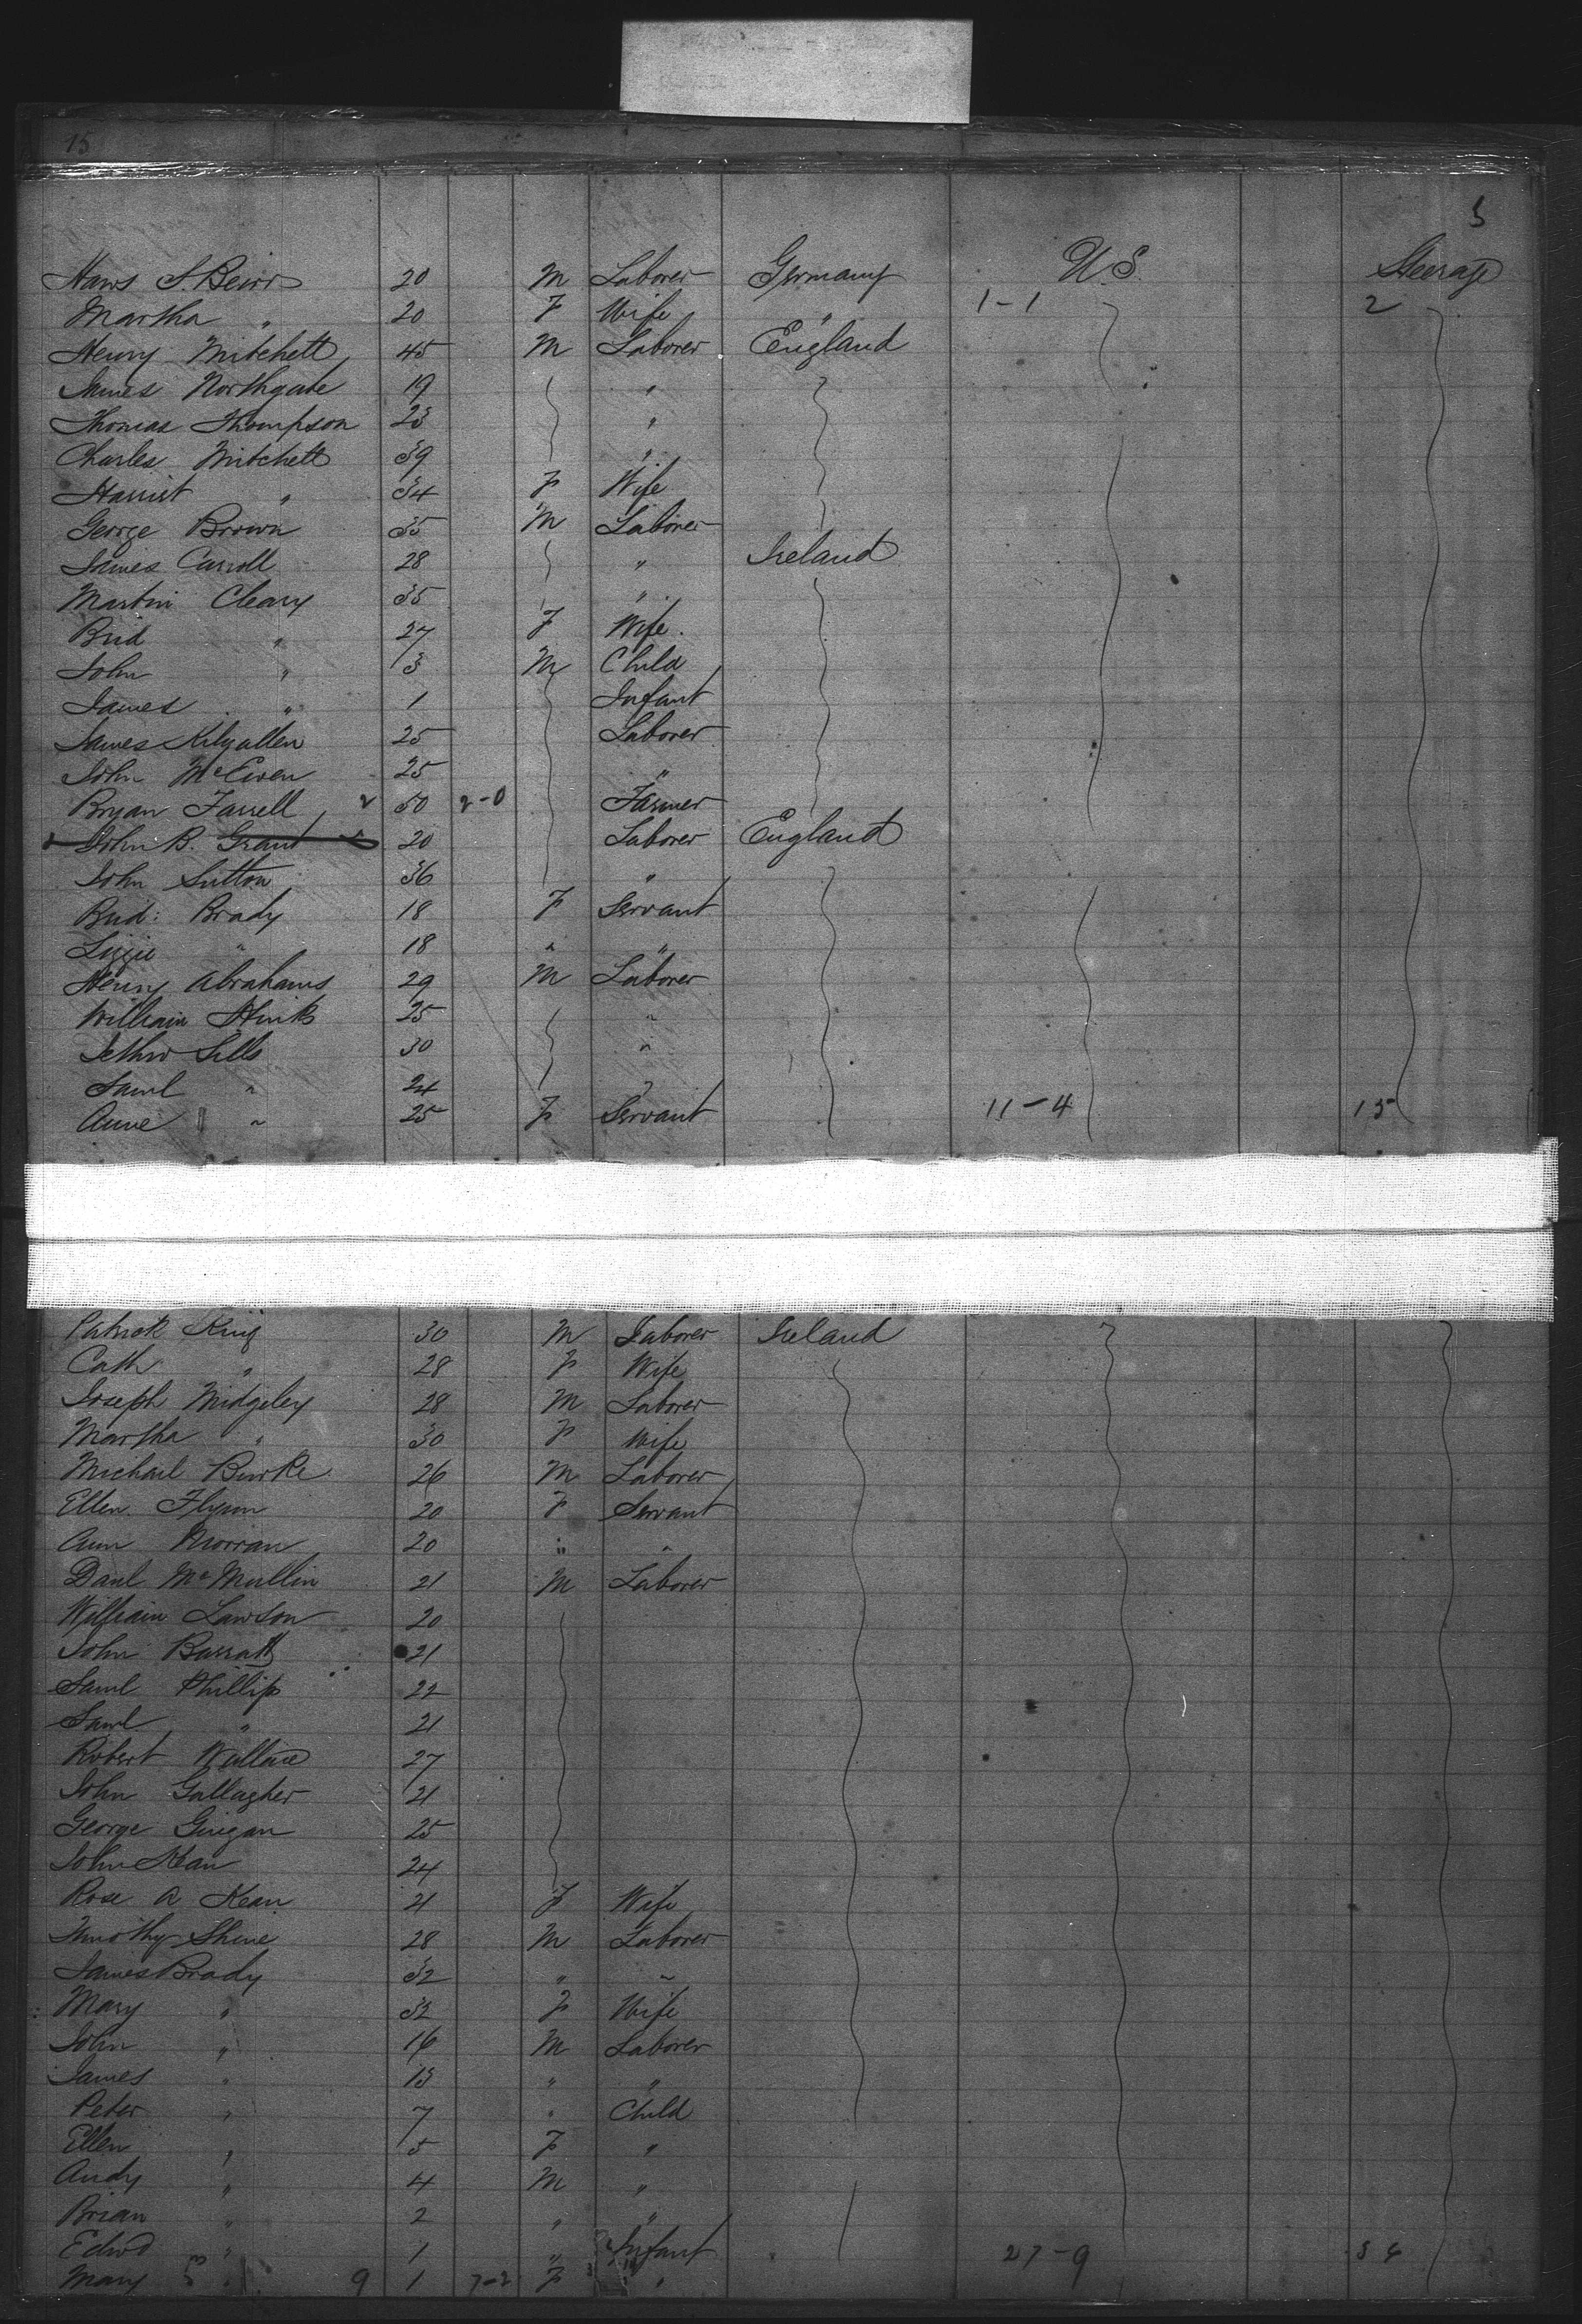 15
5
Haws S. Beirs 20 M Laborer Germany U.S. Steerage
Martha " 20 F Wife " 1-1 2
Henry Mitchell 45 M Laborer England
James Northgate 19 "
Thomas Thompson 23 "
Charles Mitchell 39 "
Harriet " 34 F Wife
George Brown 35 M Laborer
James Carroll 28 " Ireland
Martin Cleary 35 "
Brid " 27 F Wife
John " 3 M Child
James " 1 Infant
James Kilgallen 25 Laborer
John McEwen 25 "
Bryan Farrell 2 50 2-0 Farmer
John B. Grant 20 Laborer England
John Sutton 36 "
Brid: Brady 18 F Servant
Lizzie " 18 " "
Henry Abrahams 29 M Laborer
William Hinks 25 "
Jethro Sills 30 "
Saml " 24 "
Anne " 25 F Servant 11-4 15
Patrick King 30 M Laborer Ireland
Cath " 28 F Wife
Joseph Midgeley 28 M Laborer
Martha " 30 F Wife
Michael Burke 26 M Laborer
Ellen Flynn 20 F Servant
Ann Morran 20 " "
Danl McMullin 21 M Laborer
William Lawson 20
John Barratt 21
Saml Phillips 22
Saml " 21
Robert Wallace 27
John Gallagher 21
George Gingan 25
John Kean 24
Rose A Kean 21 F Wife
Timothy Shine 28 M Laborer
James Brady 32 " "
Mary " 32 F Wife
John " 16 M Laborer
James " 13 " "
Peter " 7 " Child
Ellen " 5 F "
Andy " 4 M "
Brian " 2 " "
Edwd " 1 " Infant 27-9
Mary " 9 1 7-2 F "